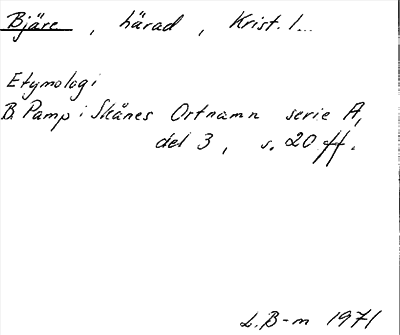 Bjäre, härad, Krist. l...
Etymologi
B. Pamp i Skånes Ortnamn serie A,
del 3, s. 20 ff.
L. B-m 1971